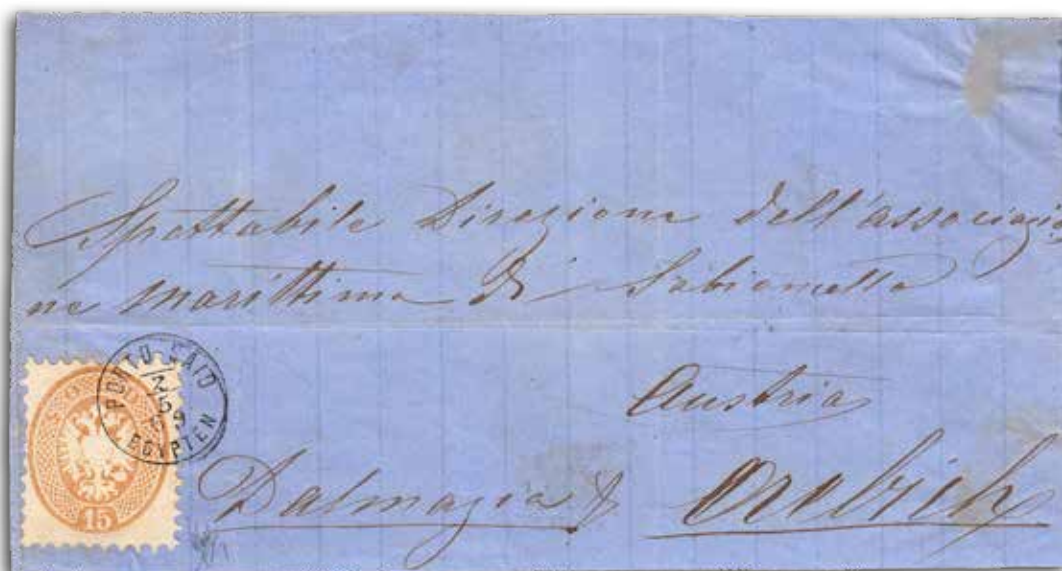 Spettabile Direzione dell'associazio
ne marittima di Sabioncello
Austria
Dalmazia
Orebich
PORTO SAID
EGYPTEN
15